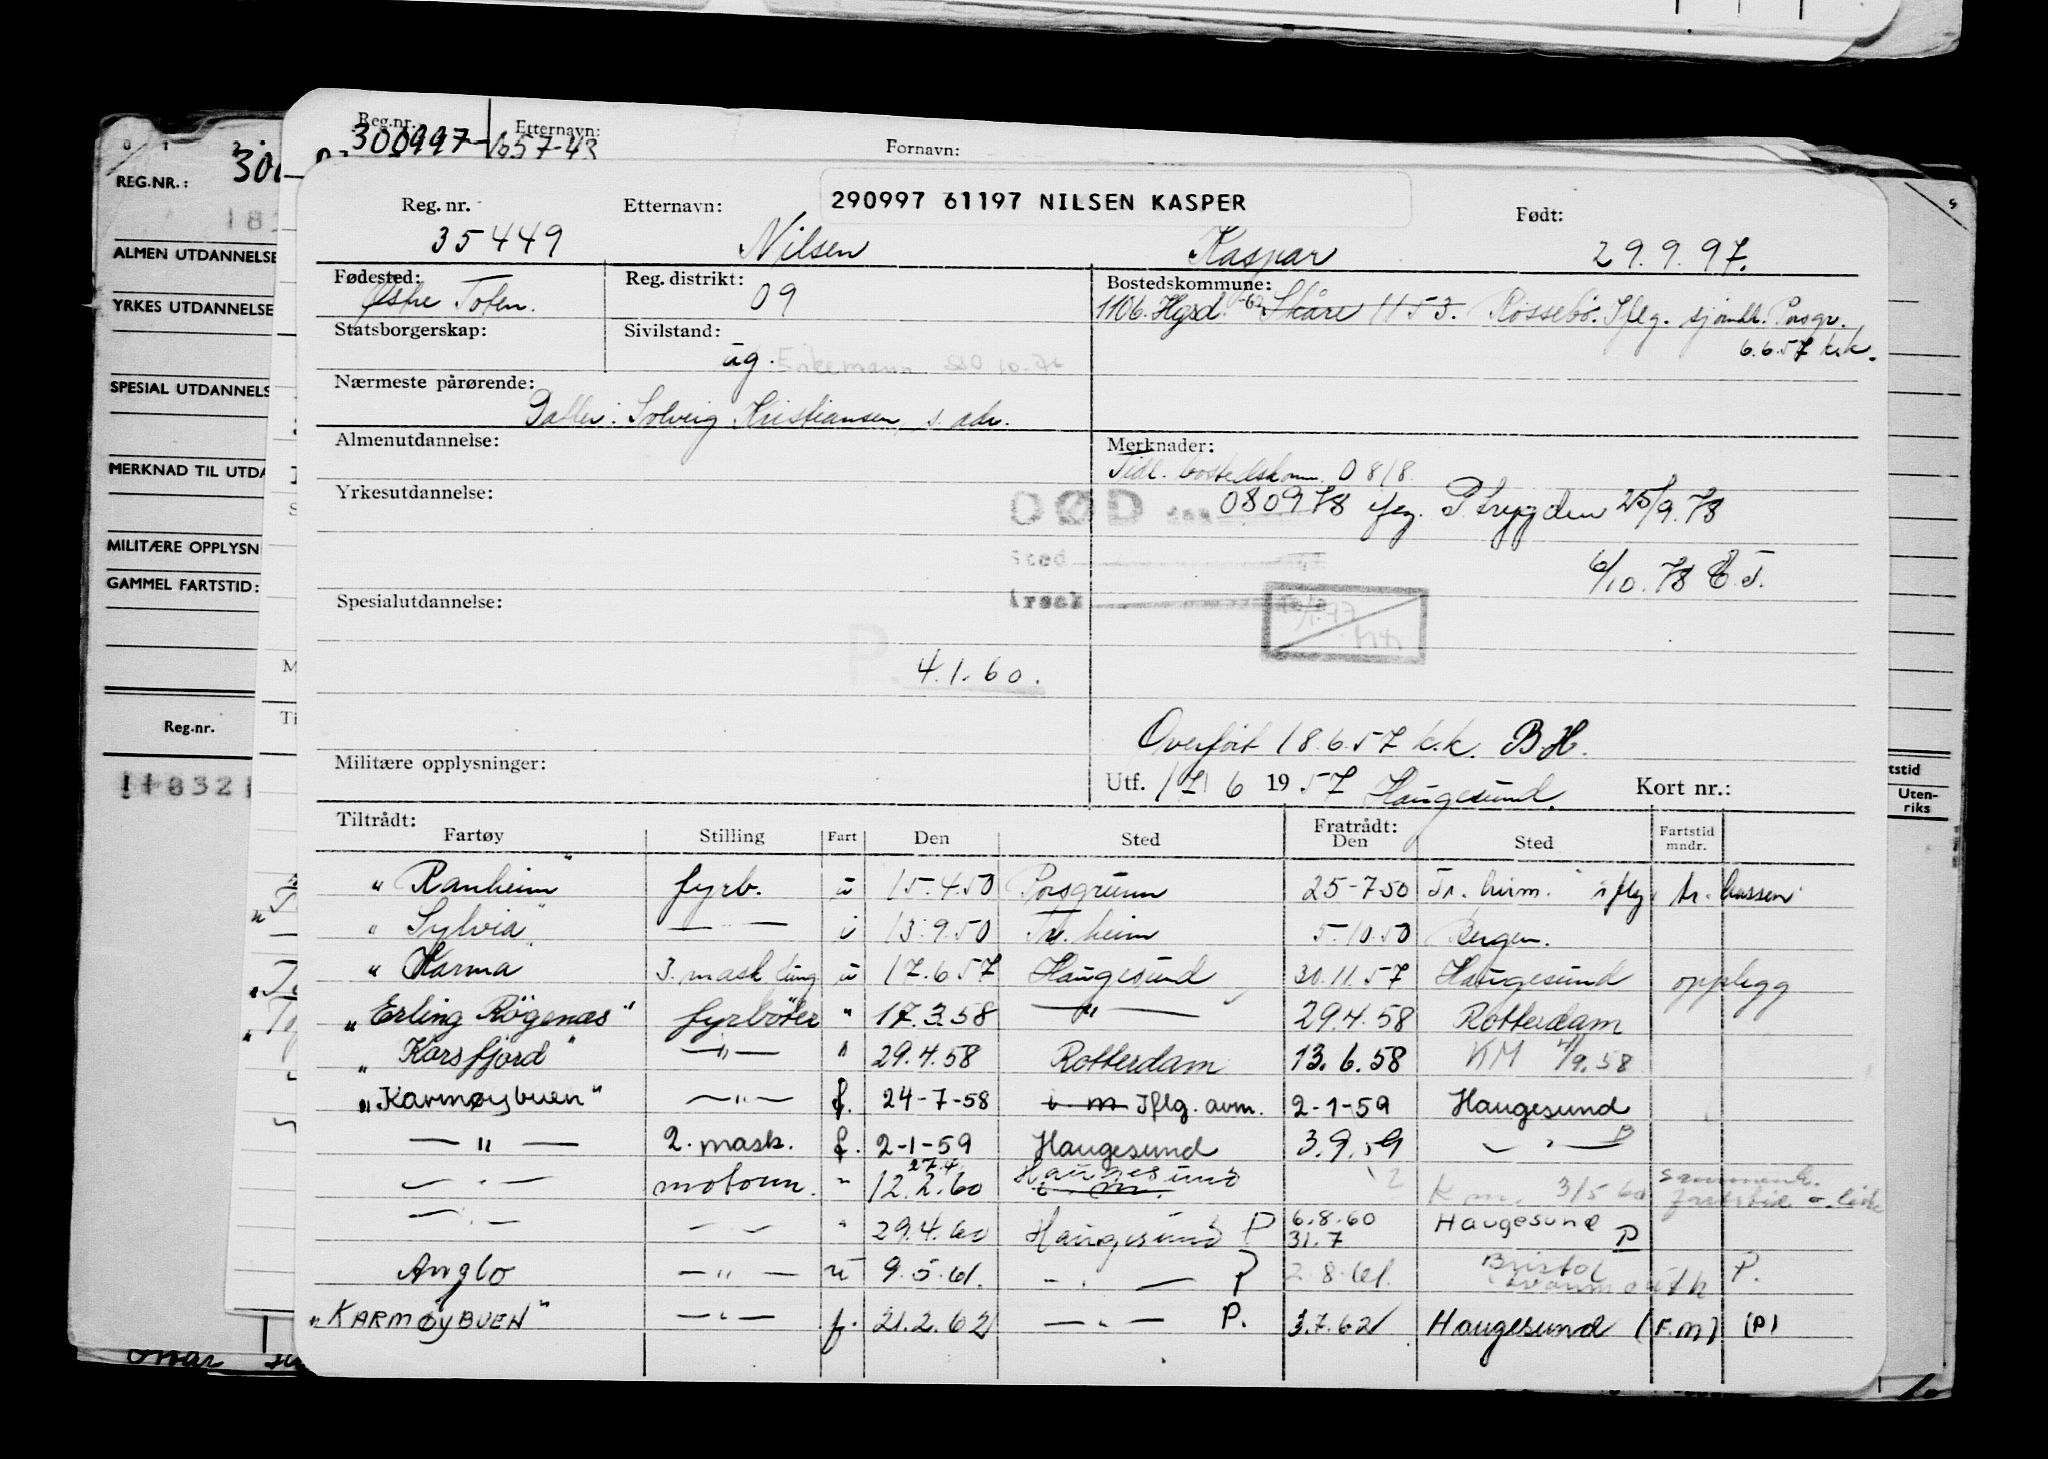 Reg.nr. Etternavn: Fornavn:
300997-
290997 61197 NILSEN KASPER
Reg. nr. Etternavn: Født:
35449 Nilsen Kaspar 29.9.97.
Fødested: Reg. distrikt: Bostedskommune:
Østre Toten. 09 1106. Hgsd. -62 Skåre 1153. Rossebø. Iflg. sjømdl. Porsgr.
6.6.57 k.k.
Statsborgerskap: Sivilstand:
ug. Enkemann 10.76
Nærmeste pårørende:
Datter: Solveig Kristiansen, s. adr.
Almenutdannelse: Merknader:
Tidl. bostedskom. 0818.
Yrkesutdannelse:
DØD den 080978 ifg. P.trygden 25/9.78
Sted
6/10.78 E.T.
Årsak
Spesialutdannelse:
P. 4.1.60.
Overført 18.6.57 k.k. B.H.
Militære opplysninger: Utf. 17/6 1957 Haugesund. Kort nr.:
Tiltrådt: Fratrådt:
Fartøy Stilling Fart Den Sted Den Sted Fartstid mndr.
"Ranheim" fyrb. u 15.4.50 Porsgrunn 25-7-50 Tr.heim. iflg. hussen
"Sylvia" — " — i 13.9.50 Tr.heim 5.10.50 Bergen.
"Karma" 3. mask u 17.6.57 Haugesund 30.11.57 Haugesund opplegg
"Erling Røgenæs" fyrbøter " 17.3.58 — " — 29.4.58 Rotterdam
"Korsfjord" — " — " 29.4.58 Rotterdam 13.6.58 KM 4/9.58
"Karmøybuen" — " — f. 24-7-58 i m Iflg. avm. 2-1-59 Haugesund
— " — 2. mask. f. 2-1-59 Haugesund 3.9.59 — " — P
— " — motorm. " 27.4. 12.2.60 Haugesund i m. K m. 3/5 60 sammenh. fartstid
— " — — " — " 29.4.60 Haugesund P 6.8.60 31.7 Haugesund P
Anglo — " — u 9.5.61. — " — P 2.8.61. Bristol P.
"KARMØYBUEN" — " — f. 21.2.62 — " — P. 3.7.62 Haugesund (F.M) (P)
REG.NR.:
ALMEN UTDANNELSE
YRKES UTDANNELSE
SPESIAL UTDANNELS
MERKNAD TIL UTDA
MILITÆRE OPPLYSN
GAMMEL FARTSTID:
Reg.nr.
tstid
Uten-
riks